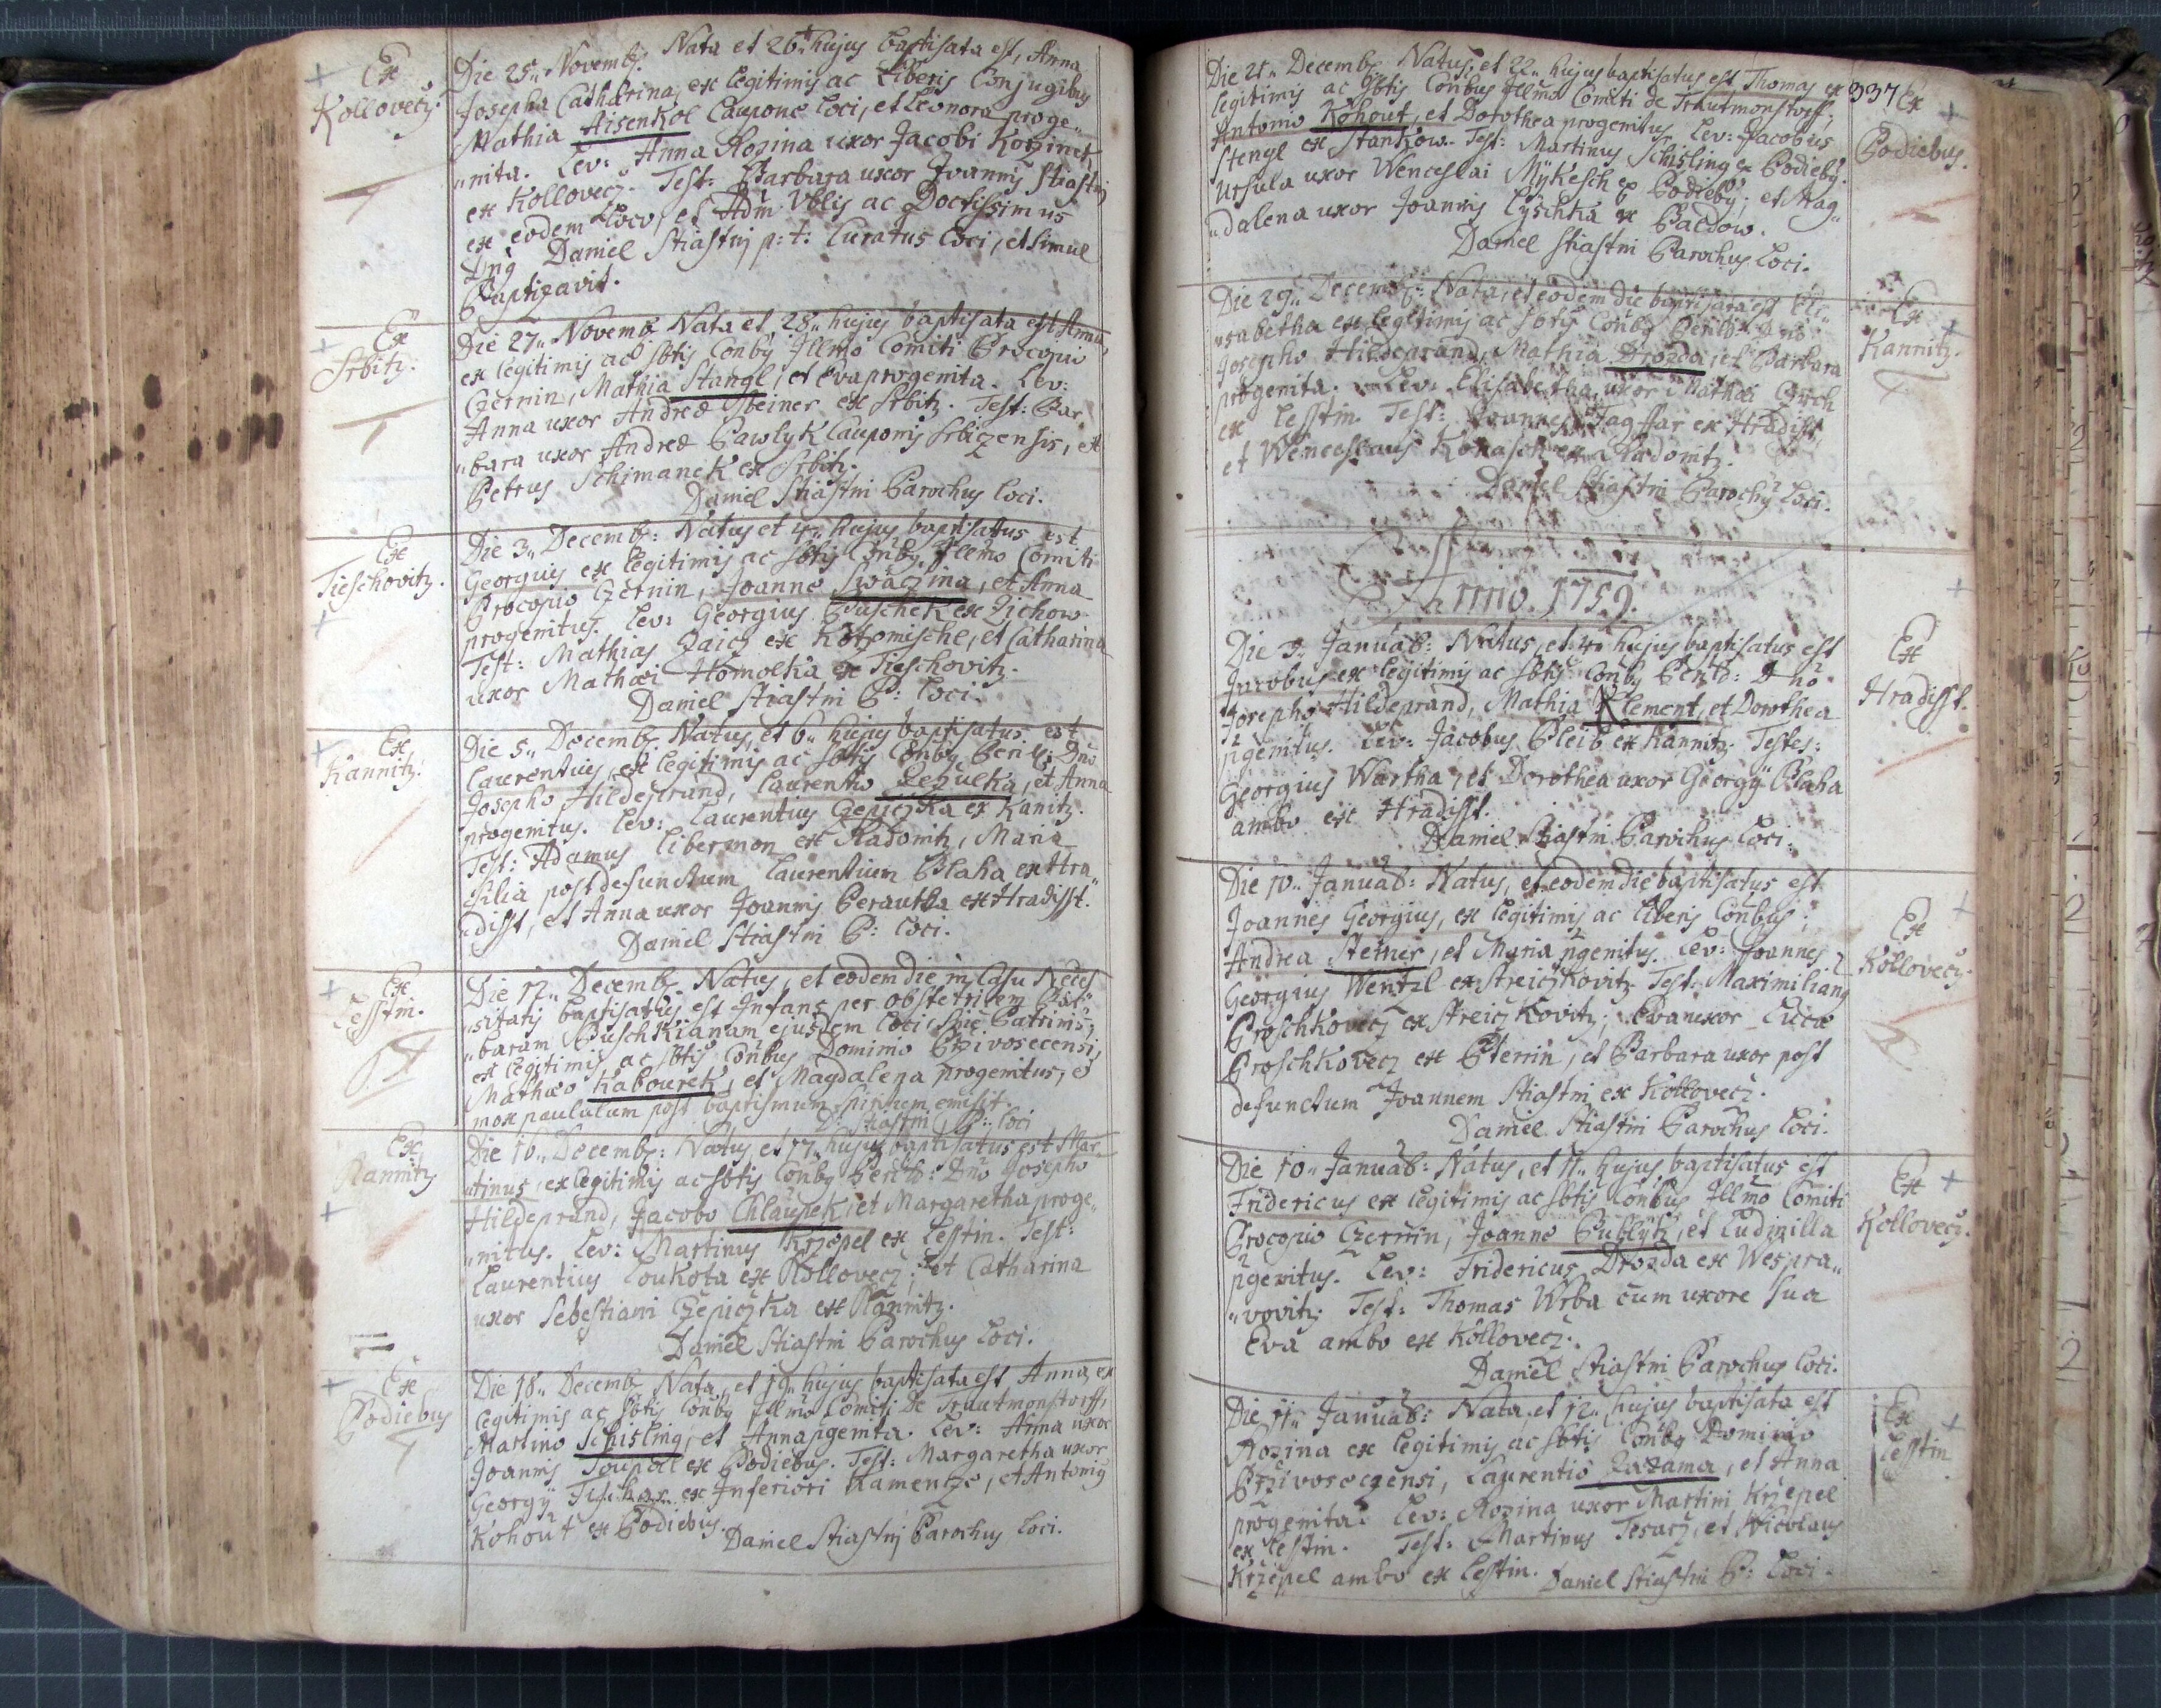 Ex
Kollovecz.
Die 25„ Novemb. Nata et 26„ hujus baptisata est, Anna
Josepha Catharina, ex legitimis ac Liberis Conjugibus
Mathia Aisenkol Caupone loci, et Leonora proge„
„nita. Lev: Anna Rozina uxor Jacobi Kozinet,
ex Kollovecz. Test: Barbara uxor Joannis Stiastni
ex eodem Loco, et Adm Vblis ac Doctissimus
Dnq Daniel Stiastnj p: t: Curatus loci, et simul
Baptizavit.
Ex
Srbitz.
Die 27„ Novemb Nata et 28„ hujus baptisata est Anna,
ex legitimis ac sbtis Conby Illmo Comiti Procopio
Czernin, Mathia Stangl, et Eva progenita. Lev:
Anna uxor Andreæ Steiner ex Srbitz. Test: Bar„
„bara uxor Andreæ Pawlyk Cauponis Srbizensis, et
Petrus Schimanek ex Srbitz.
Daniel Stiastni Parochus loci.
Ex
Tieschovitz.
Die 3„ Decemb: Natus et 4„ hujus baptisatus est
Georgius ex legitimis ac sbtis Conby Illmo Comiti
Procopio Czernin, Joanne Swaczina, et Anna
progenitus. Lev: Georgius Buschek ex Zichow
Test: Mathias Zaicz ex Kotomischl, et Catharina
uxor Mathæi Homolka ex Tieschovitz.
Daniel Stiastni P: Loci.
Ex
Kannitz.
Die 5„ Decemb Natus, et 6„ hujus baptisatus est
Laurentius, ex legitimis ac sbtis Conby Dno
Josepho Hildeprand, Laurentio Zezulka, et Anna
progenitus. Lev: Laurentius Czepiczka ex Kanitz.
Test: Adamus Libermon ex Radonitz, Maria
filia post defunctum Laurentium Blaha ex Hra„
„disst, et Anna uxor Joannis Berautka ex Hradisst.
Daniel Stiastni P: Loci.
Ex
Lesstin.
Die 12„ Decemb Natus, et eodem die in Casu Neces„
„sitatis baptisatus est Infans per obstetricem Bar„
„baram Puschkianam ejusdem loci, sine Patrinis,
ex legitimis ac sbtis Conbus Dominio Przivosecensi,
Mathæo Kabourek, et Magdalena progenitus, et
mox paululum post baptismum spiritum emisit.
D: Stiastni P: loci
Ex
Kannitz
Die 16„ Decemb: Natus et 17„ hujus baptisatus est Mar„
„tinus, ex legitimis ac sbtis Conby Dno Josepho
Hildeprand, Jacobo Chlaupek, et Margaretha proge„
„nitus. Lev: Martinus Krzepel ex Lesstin. Test:
Laurentius Loukota ex Kollovecz, et Catharina
uxor Sebestiani Czepiczka ex Kannitz.
Daniel Stiastni Parochus Loci.
Ex
Podiebus
Die 18„ Decemb Nata, et 19„ hujus baptisata est Anna, ex
legitimis ac sbtis Conby Illmo Comiti de Trautmonstorff,
Martino Schisling, et Anna pgenita. Lev: Anna uxor
Joannis Toupal ex Podiebus. Test: Margaretha uxor
Georgÿ ex Inferiori Kamentze, et Antonius
Kohout ex Podiebus.
Daniel Stiastnj Parochus loci.
337
Ex
Podiebus.
Die 21„ Decemb Natus, et 22„ hujus baptisatus est Thomas ex
legitimis ac sbtis Conbus Illmo Comiti de Trautmonstorff,
Antonio Kohout, et Dorothea progenitus. Lev: Jacobus
Stengl ex Stankow. Test: Martinus Schisling ex Podieby.
Ursula uxor Wenceslai Mÿkesch ex Podieby, et Mag„
„dalena uxor Joannis Lyschka ex Paczow.
Daniel Stiastni Parochus Loci.
Ex
Kannitz.
Die 29„ Decemb: Nata, et eodem die baptisata est Eli„
„sabetha ex legitimis ac sbtis Conby Dno
Josepho Hildeprand, Mathia Drozda, et Barbara
progenita. Lev: Elisabetha, uxor Mathæi
ex Lesstin. Test: Joannes ex Hradisst,
et Wenceslaus ex Radonitz.
Daniel Stiastni Parochus Loci.
Anno. 1759.
Ex
Hradisst.
Die 3„ Januar: Natus, et 4„ hujus baptisatus est
Jacobus ex legitimis ac sbtis Conby Dno
Josepho Hildeprand, Mathia Klement, et Dorothea
pgenitus. Lev: Jacobus Bleib ex Kannitz. Testes:
Georgius Wartha, et Dorothea uxor Georgÿ Blaha
ambo ex Hradisst.
Daniel Stiastni Parochus Loci.
Ex
Kollovecz.
Die 10„ Januar: Natus, et eodem die baptisatus est
Joannes Georgius, ex legitimis ac liberis Conbus,
Andrea Steiner, et Maria pgenitus. Lev: Joannes
Georgius Wentzl ex Streiczkovitz. Test: Maximilianq
Proschkovecz ex Streiczkovitz, Eva uxor Lucæ
Proschkovecz ex Pterrin, et Barbara uxor post
defunctum Joannem Stiastni ex Kollovecz.
Daniel Stiastni Parochus Loci.
Ex
Kollovecz.
Die 10„ Januar: Natus, et 11„ hujus baptisatus est
Fridericus ex legitimis ac sbtis Conbus Illmo Comiti
Procopio Czernin, Joanne Bublyk, et Ludmilla
pgenitus. Lev: Fridericus Drozda ex Wespra„
„vovitz. Test: Thomas Wrba cum uxore sua
Eva ambo ex Kollovecz.
Daniel Stiastni Parochus loci.
Ex
Lesstin
Die 11„ Januar: Nata, et 12„ hujus baptisata est
Rozina ex legitimis ac sbtis Conby Dominio
Przivoseczensi, Laurentio Jazama, et Anna
progenita. Lev: Rozina uxor Martini Krzepel
ex Lesstin. Test: Martinus Tesarz, et Nicolaus
Krzepel ambo ex Lesstin. Daniel Stiastni P: Loci.